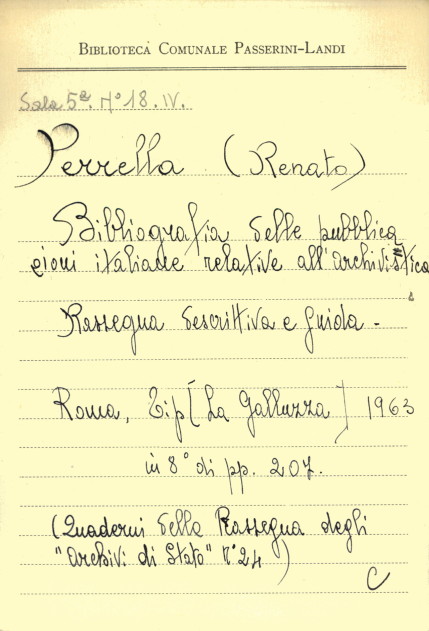 BIBLIOTECA COMUNALE PASSERINI-LANDI
Sala 5ª. N° 18. IV.
Perrella (Renato)
Bibliografia delle pubblica
zioni italiane relative all'archivistica
Rassegna descrittiva e guida -
Roma, Tip [La Galluzza] 1963
in 8° di pp. 207.
(Quaderni della Rassegna degli
"Archivi di Stato" n° 24)
C